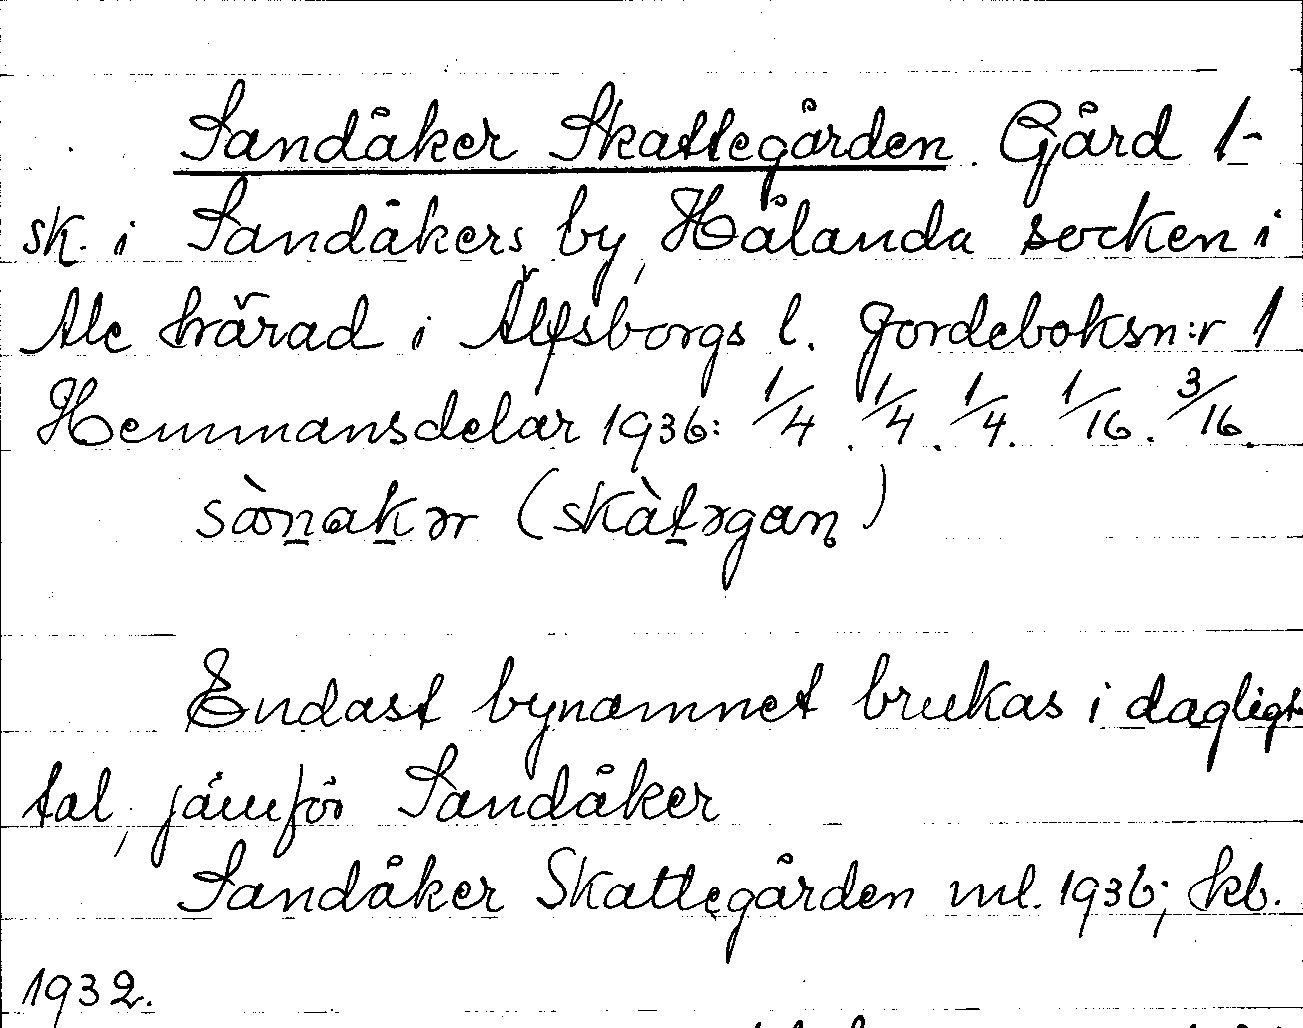 Sandåker Skattegården. Gård 1-
sk. i Sandåkers by, Hålanda socken i
Ale härad i Älfsborgs l. Jordeboksn:r 1
Hemmansdelar 1936: 1/4. 1/4. 1/4. 1/16. 3/16.
sànakər (skàtəgan)
Endast bynamnet brukas i dagligt
tal, jämför Sandåker
Sandåker Skattegården ml. 1936; kb.
1932.